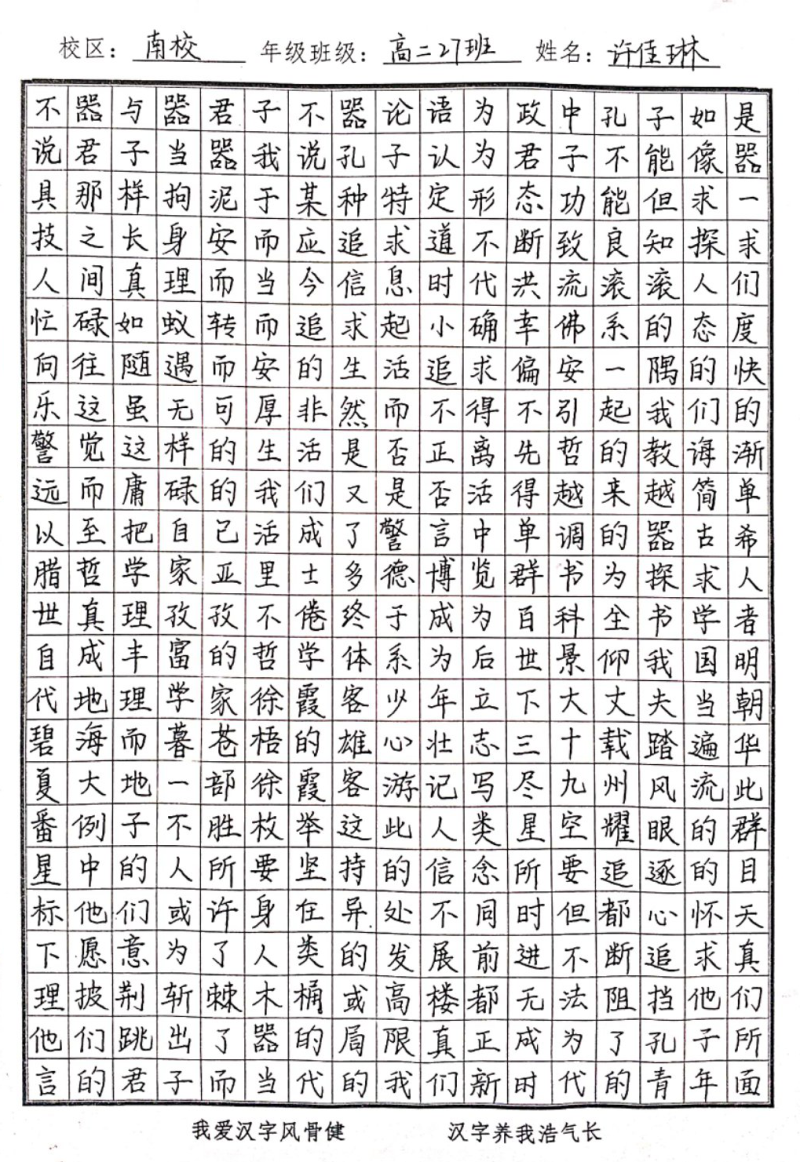 校区：南校 年级班级：高二27班 姓名：许佳琳
不器与器君子不器论语为政中孔子如是
说君子当器我说孔子认为君子不能像器
具那样拘泥于某种特定形态功能但求一
技之长身安而应追求道不断致良知探求
人间真理而当今信息时代洪流滚滚人们
忙碌如蚁转而追求起小确幸佛系的态度
向往随遇而安的生活追求偏安一隅的快
乐这虽无可厚非然而不得不引起我们的
警觉这样的生活是否正离先哲的教诲渐
远而庸碌的我们又是否活得越来越简单
以至把自己活成了警言中单调的器古希
腊哲学家亚里士多德博览群书为探求人
世真理孜孜不倦终于成为百科全书学者
自成丰富的哲学体系为后世景仰我国明
代地理学家徐霞客少年立下大丈夫当朝
碧海而暮苍梧的雄心壮志三十载踏遍华
夏大地一部徐霞客游记写尽九州风流此
番例子不胜枚举这此人类星空耀眼的群
星中的人所要坚持的信念所要追逐的目
标他们或许身在异处不同时但都心怀天
下愿意为了人类的发展前进不断追求真
理披荆斩棘木桶或高楼都无法阻挡他们
他们跳出了器的局限真正成为了孔子所
言的君子而当代的我们新时代的青年面
我爱汉字风骨健 汉字养我浩气长